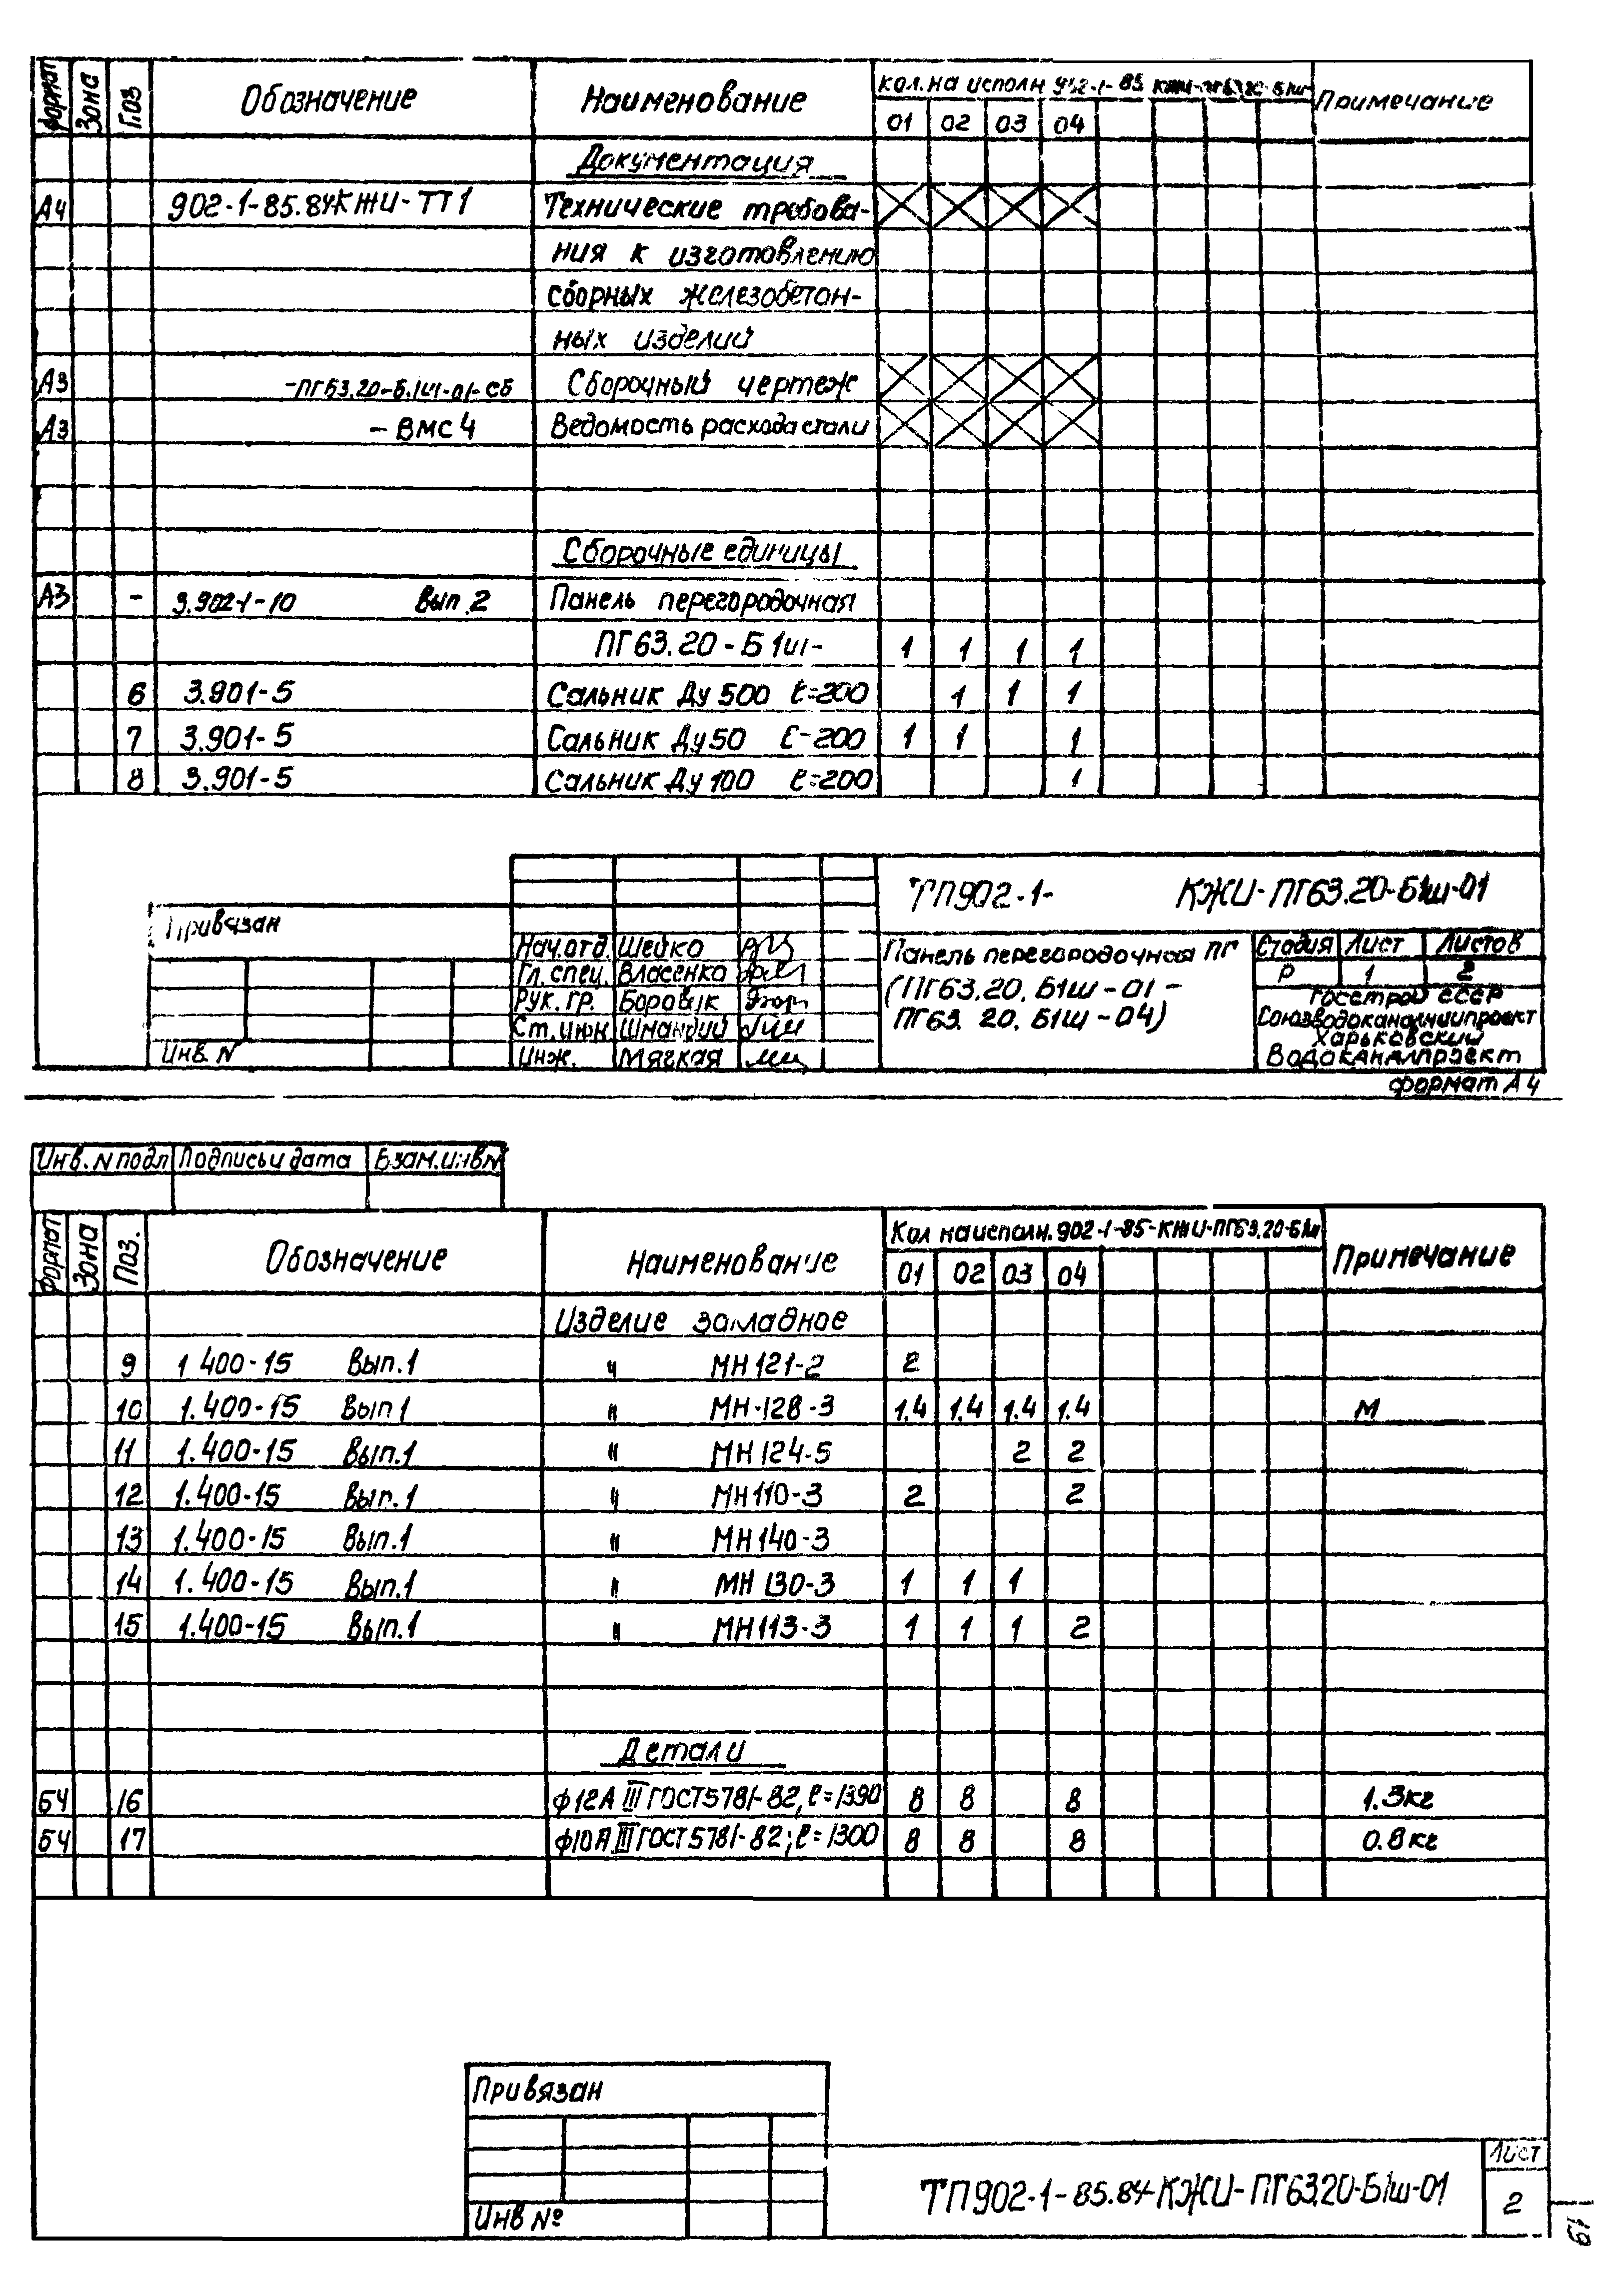 Формат Зона Поз Обозначение Наименование Кол. на исполн 902-1-85 КЖИ-ПГ63.20-Б1ш Примечание
01 02 03 04
Документация
А4 902-1-85.84КЖИ-ТТ1 Технические требова-
ния к изготовлению
сборных железобетон-
ных изделий
А3 -ПГ63.20-Б.1ш-01-СБ Сборочный чертеж
А3 -ВМС4 Ведомость расхода стали
Сборочные единицы
А3 - 3.902-1-10 Вып.2 Панель перегородочная
ПГ63.20-Б1ш- 1 1 1 1
6 3.901-5 Сальник Ду 500 ℓ=200 1 1 1
7 3.901-5 Сальник Ду50 ℓ-200 1 1 1
8 3.901-5 Сальник Ду 100 ℓ=200 1
ТП902-1- КЖИ-ПГ63.20-Б1ш-01
Привязан
Нач.отд. Шейко
Гл.спец. Власенко
Рук.гр. Боровик
Ст.инж.
Инж. Мягкая
Инв. N
Панель перегородочная ПГ
(ПГ63.20.Б1ш-01-
ПГ63.20.Б1ш-04)
Стадия Лист Листов
Р 1 2
Госстрой СССР
Союзводоканалниипроект
Харьковский
Водоканалпроект
формат А4
Инв.N подл Подпись и дата Взам.инв№
Формат Зона Поз. Обозначение Наименование Кол на исполн. 902-1-85-КЖИ-ПГ63.20-Б1ш Примечание
01 02 03 04
Изделие закладное
9 1.400-15 Вып.1 " МН121-2 2
10 1.400-15 Вып 1 " МН-128-3 1.4 1.4 1.4 1.4 М
11 1.400-15 Вып.1 " МН124-5 2 2
12 1.400-15 Вып.1 " МН110-3 2 2
13 1.400-15 Вып.1 " МН140-3
14 1.400-15 Вып.1 " МН130-3 1 1 1
15 1.400-15 Вып.1 " МН113-3 1 1 1 2
Детали
БЧ 16 ф12А III ГОСТ5781-82, ℓ=1390 8 8 8 1.3кг
БЧ 17 ф10А III ГОСТ5781-82; ℓ=1300 8 8 8 0.8кг
Привязан
Инв №
ТП902-1-85.84-КЖИ-ПГ63.20-Б1ш-01
Лист
2
19